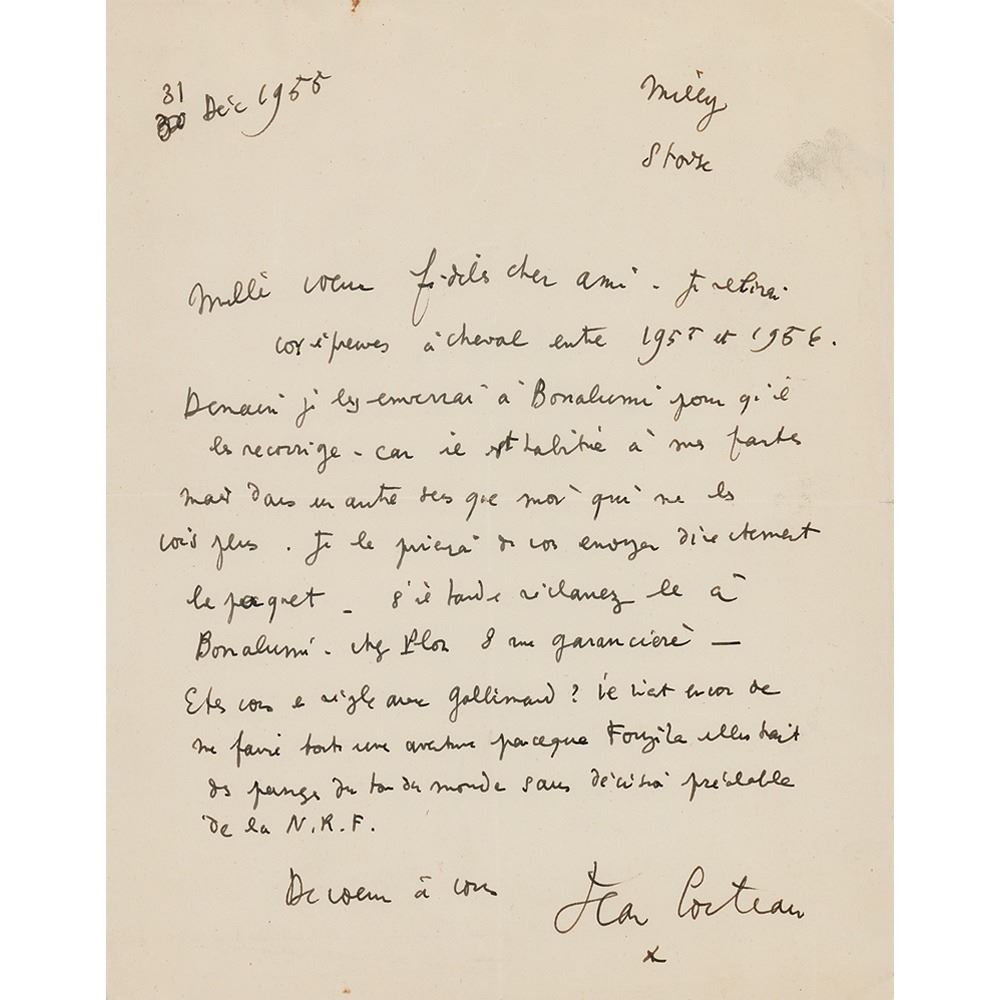 31 Déc 1955
Milly
S et Oise
Mille voeux fidèles cher ami. Je relirai
vos épreuves à cheval entre 1955 et 1956.
Demain je les enverrai à Bonalumi pour qu'il
les recorrige - car il est habitué à mes fautes
mais dans un autre sens que moi qui ne les
vois plus. Je le prierai de vous envoyer directement
le paquet - s'il tarde réclamez le à
Bonalumi - chez Plon 8 rue garancière —
Etes vous en règle avec Gallimard ? il vient encor de
me faire toute une aventure parceque illustrait
des passages du tour du monde sans décision préalable
de la N.R.F.
De coeur à vous
Jean Cocteau